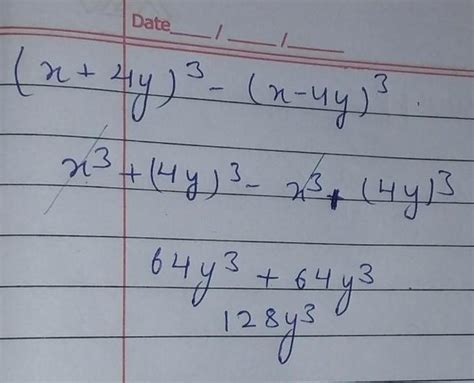 Date ___ / ___ / ___
(x + 4y)³ - (x - 4y)³.
x³ + (4y)³ - x³ + (4y)³
64y³ + 64y³
128y³